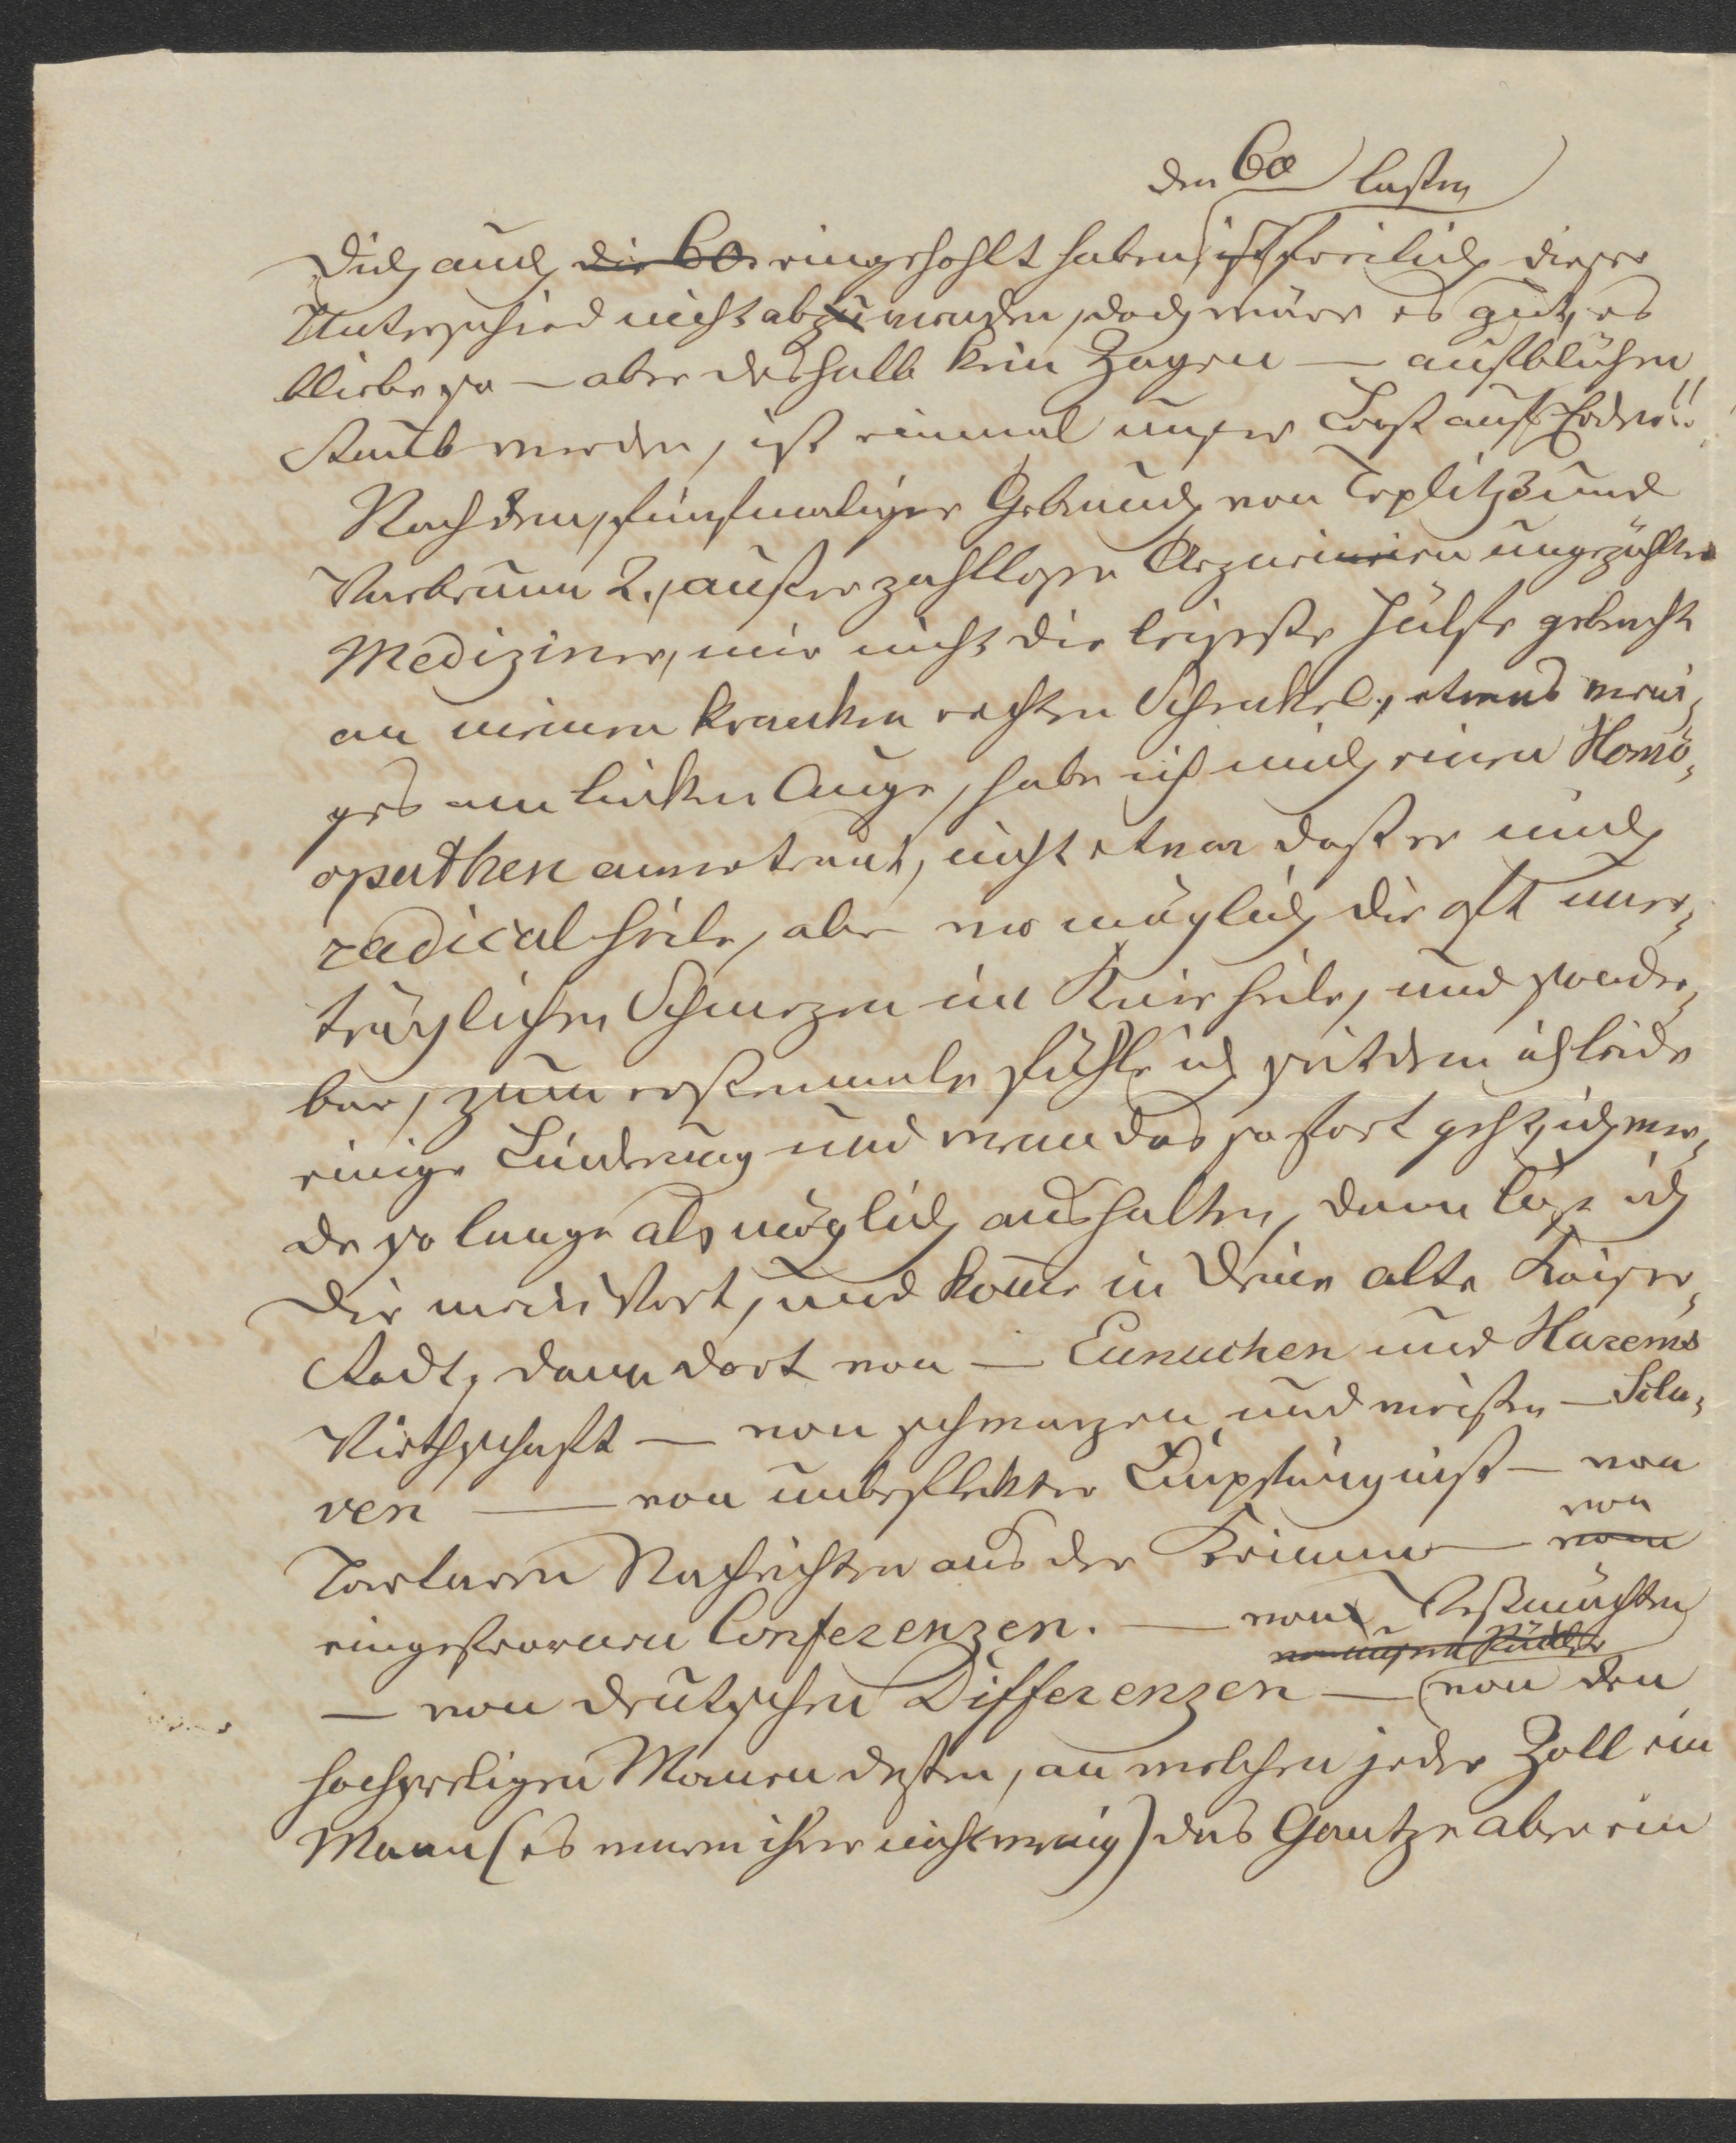 den 60 lasten
Dich auch die 60. eingehohlt haben, ist freilich dieser
Unterschied nicht abzuwenden, doch wäre es gut, es
bliebe so — aber deshalb kein Zagen — aufblühen
Staub werden, ist einmal unser Loos auf Erden!!
Nachdem, fünfmaliger Gebrauch von Teplitz und
Warbrunn 2., außer zahllosen Arzneien ungezählter
Mediziner, mir nicht die leiseste Hülfe gebracht
an meinem kranken rechten Schenkel, etwas weni,
ges am linken Auge, habe ich mich einem Homö,
opathen anvertraut, nicht etwa daß er mich
radical heile, aber wo möglich die oft uner,
träglichen Schmerzen im Knie heile, und sonder,
bar, zum erstenmale fühle ich seitdem ich leide
einige Linderung und wenn das so fort geht, ich wer,
de so lange als möglich aushalten, dann löse ich
Dir mein Wort, und komme in Deine alte Kaiser,
stadt, dann dort von — Eunuchen und Harems
Wirthschaft — von schwarzen und weißen — Scla,
ven — von unbeflekter Empfängniß — von
Tartaren Nachrichten aus der Krimm — von von
eingefrornen Conferenzen. — von Westmächten
— von deutschen Differenzen — von den
hochseeligen Manen dessen, an welchen jeder Zoll ein
Mann (es waren ihrer nicht wenig) das Gantze aber ein